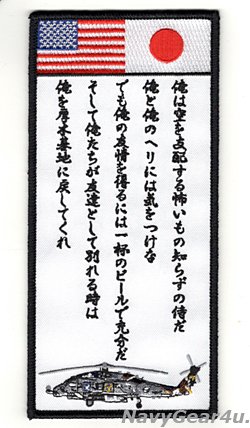 俺は空を支配する怖いもの知らずの侍だ
俺と俺のヘリには気をつけな
でも俺の友情を得るには一杯のビールで充分だ
そして俺たちが友達として別れる時は
俺を厚木基地に戻してくれ
NavyGear4u.com